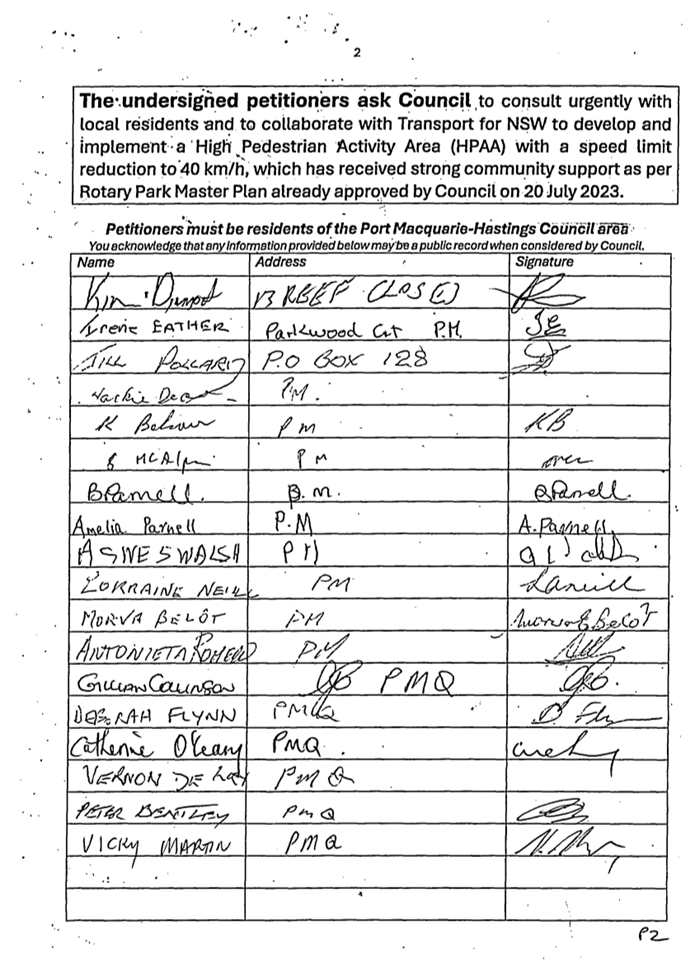 2
The undersigned petitioners ask Council to consult urgently with
local residents and to collaborate with Transport for NSW to develop and
implement a High Pedestrian Activity Area (HPAA) with a speed limit
reduction to 40 km/h, which has received strong community support as per
Rotary Park Master Plan already approved by Council on 20 July 2023.
Petitioners must be residents of the Port Macquarie-Hastings Council area
You acknowledge that any information provided below may be a public record when considered by Council.
Name Address Signature
Kim 13 REEF CLOSE
Irene EATHER Parkwood Crt P.M. IE
JILL POLLARD P.O BOX 128
Jackie P.M.
K PM KB
MCAlpin PM
B Parnell. P.M. B Parnell.
Amelia Parnell P.M A. Parnell
AGNES WALSH PM
LORRAINE NEILL PM
MORVA BELÔT PM Morva Belot
ANTONIETA ROMERO PM
GILLIAN COLLINSON PMQ
DEBORAH FLYNN PMQ D Flynn
Catherine O'Leary PMQ.
VERNON DE PMQ
PETER BENTLEY PMQ
VICKY MARTIN PMQ
P2